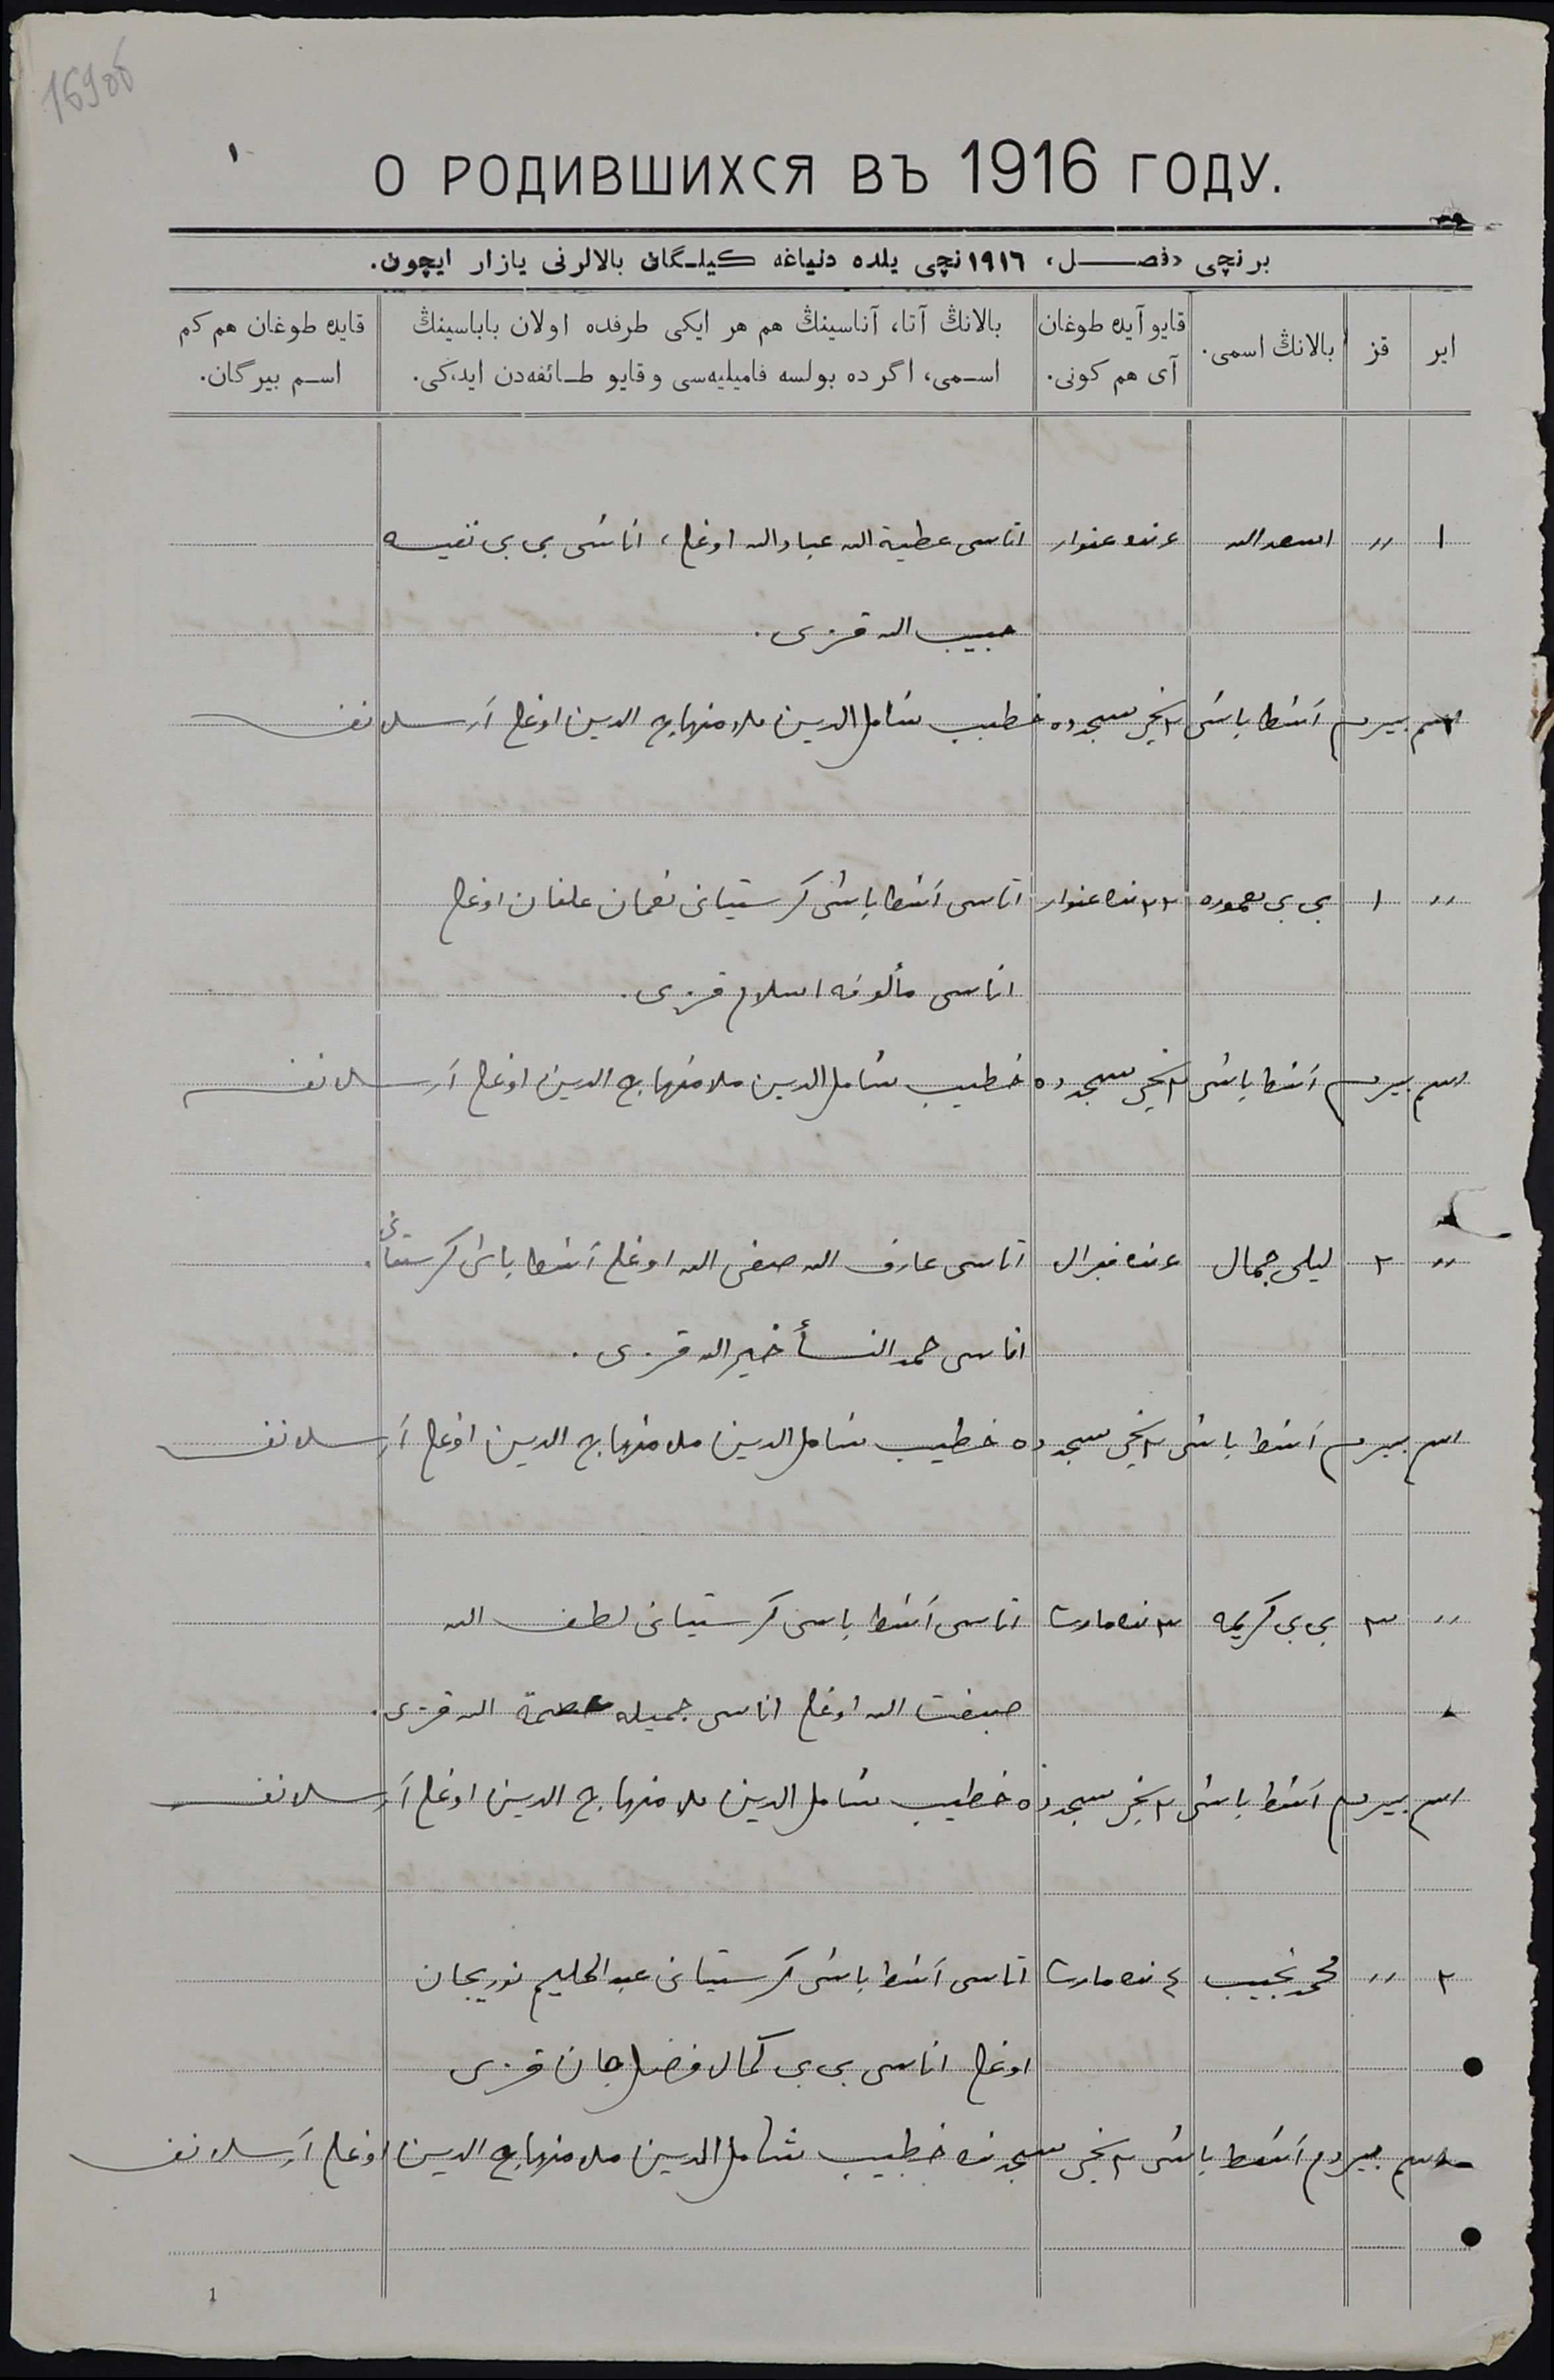 169об
١
О РОДИВШИХСЯ ВЪ 1916 ГОДУ.
برنچی فصل، ١٩١٦ نچی یلده دنیاغه کیلگان بالالرنی یازار ایچون.
ایر
قز
بالانڭ اسمی.
قایو آیده طوغان آی هم کونی.
بالانڭ آتا، آناسینڭ هم هر ایکی طرفده اولان باباسینڭ اسمی، اگر ده بولسه فامیلیه‌سی و قایو طائفه‌دن ایدکی.
قایده طوغان هم کم اسم بیرگان.
١ ,, اسعد الله ٤ نده غنوار اتاسی عطیة الله عباد الله اوغلی، اناسی بی بی نفیسه
حبیب الله قزی.
اسم بیردم آشط باشی ٢ نچی مسجدده خطیب شامل الدین ملا منهاج الدین اوغلی آرسلانف
,, ١ بی بی معموره ٢٢ نده غنوار اتاسی آشط باشی کرستیانی نعمان علفان اوغلی
اناسی مألوفه اسلام قزی.
اسم بیردم آشط باشی ٢ نچی مسجدده خطیب شامل الدین ملا منهاج الدین اوغلی آرسلانف
,, ٢ لیلی جمال ٤ نده فبرال اتاسی عارف الله صفی الله اوغلی آشط باشی کرستیانی.
اناسی حمد النسأ خیر الله قزی.
اسم بیردم آشط باشی ٢ نچی مسجدده خطیب شامل الدین ملا منهاج الدین اوغلی آرسلانف
,, ٣ بی بی کریمه ٣ نده مارت اتاسی آشط باشی کرستیانی لطف الله
صبغت الله اوغلی اناسی جمیله عصمة الله قزی.
اسم بیردم آشط باشی ٢ نچی مسجدده خطیب شامل الدین ملا منهاج الدین اوغلی آرسلانف
٢ ,, محمد نجیب ٤ نده مارت اتاسی آشط باشی کرستیانی عبد الحلیم نوریجان
اوغلی اناسی بی بی کمال فضل جان قزی
اسم بیردم آشط باشی ٢ نچی مسجدنده خطیب شامل الدین ملا منهاج الدین اوغلی آرسلانف
1